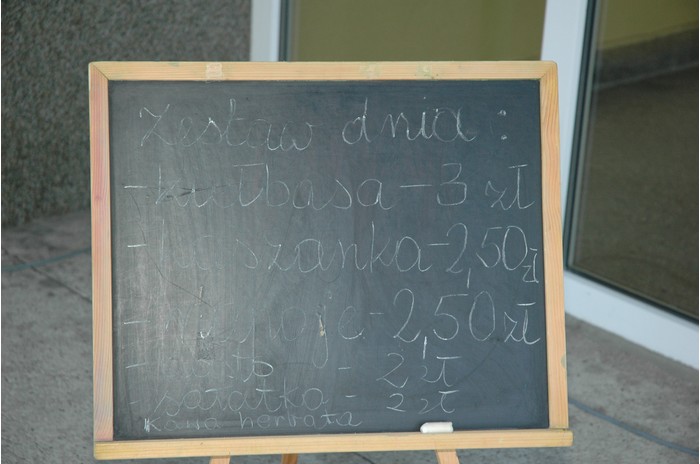 zestaw dnia :
- kiełbasa - 3 zł
- kaszanka - 2,50 zł
- napoje - 2,50 zł
- - 2 zł
- sałatka - 2 zł
kawa herbata